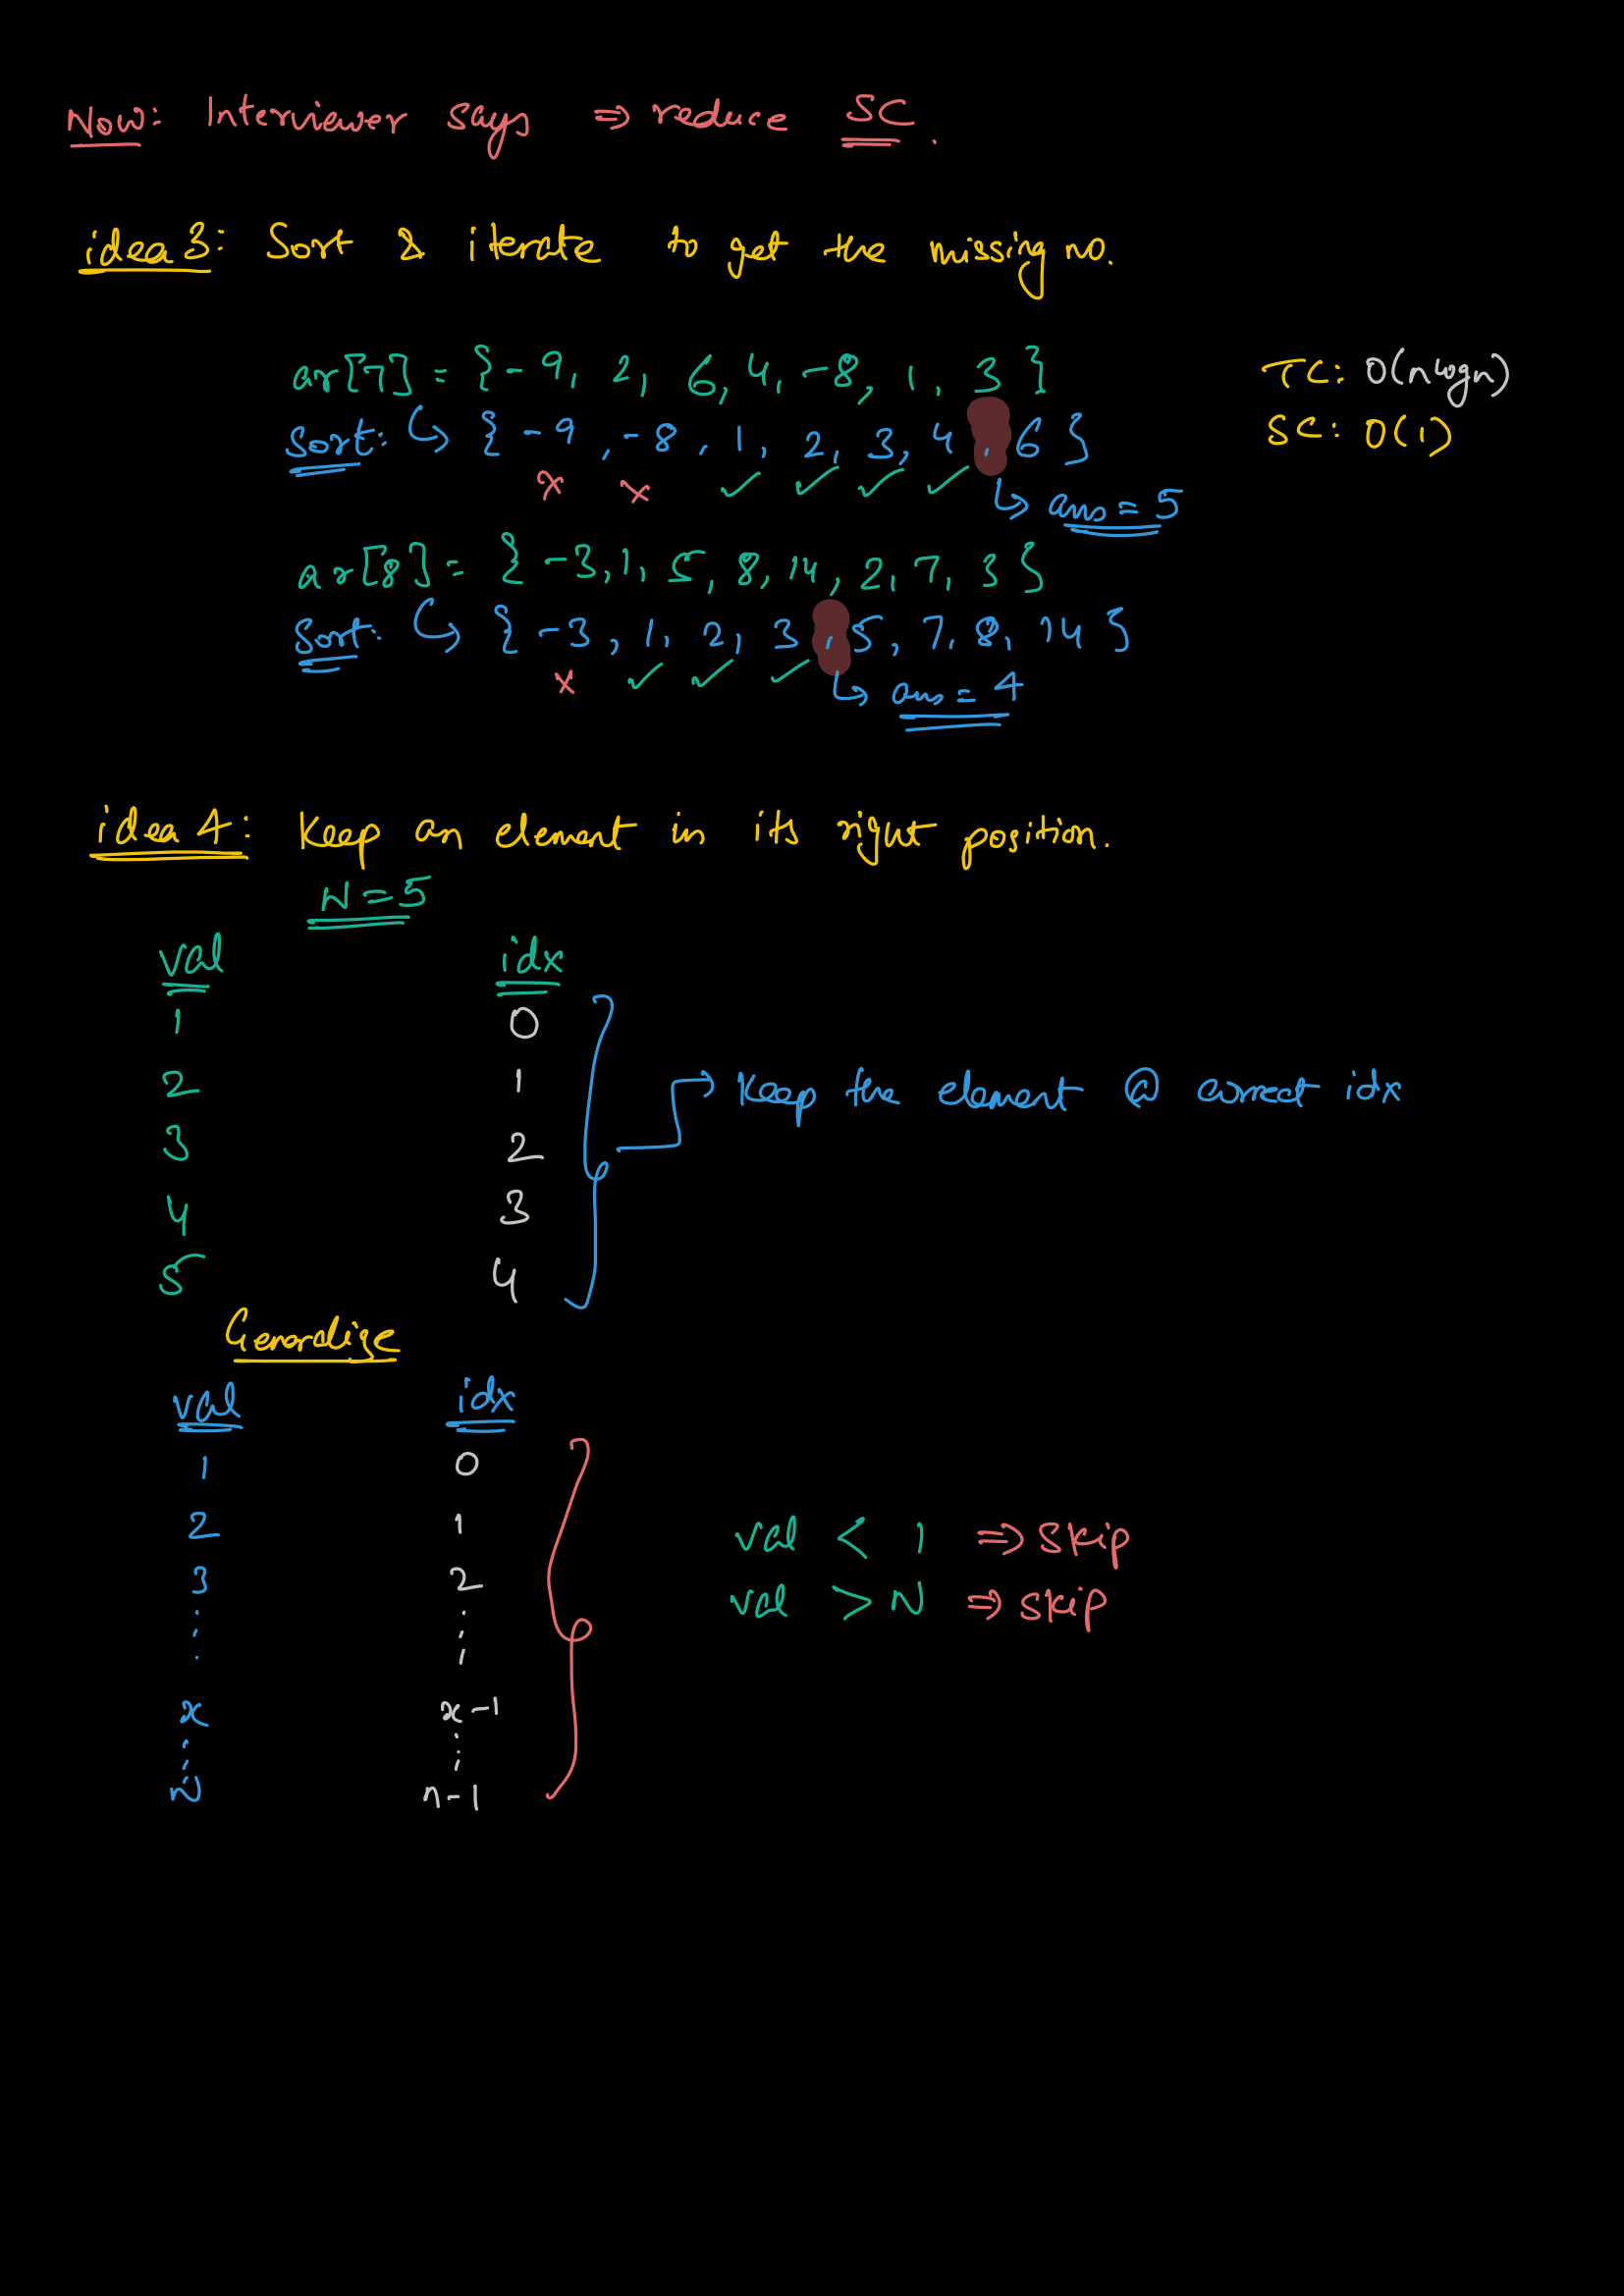 Now: Interviewer says ⇒ reduce SC.
idea 3: Sort & iterate to get the missing no.
ar[7] = {-9, 2, 6, 4, -8, 1, 3} TC: O(nlogn)
Sort: ↪ {-9, -8, 1, 2, 3, 4, 6} SC: O(1)
x x ✓ ✓ ✓ ✓ ↪ ans = 5
ar[8] = {-3, 1, 5, 8, 14, 2, 7, 3}
Sort: ↪ {-3, 1, 2, 3, 5, 7, 8, 14}
x ✓ ✓ ✓ ↪ ans = 4
idea 4: Keep an element in its right position.
N = 5
val idx
1 0
2 1 → Keep the element @ correct idx
3 2
4 3
5 4
Generalize
val idx
1 0
2 1 val < 1 ⇒ skip
3 2 val > N ⇒ skip
⋮ ⋮
x x-1
⋮ ⋮
N n-1